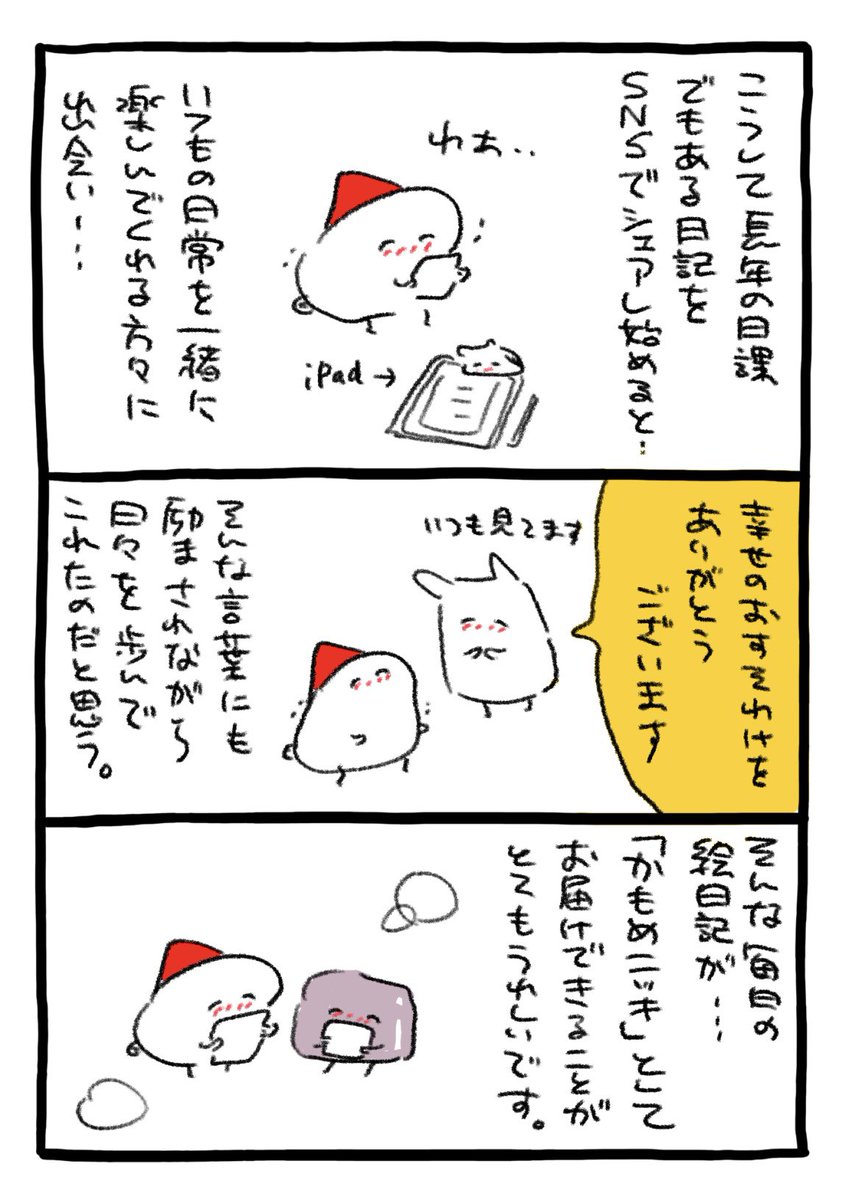 こうして長年の日課
でもある日記を
SNSでシェアし始めると…
わぁ..
iPad→
いつもの日常を一緒に
楽しんでくれる方々に
出会い…
幸せのおすそわけを
ありがとう
ございます
いつも見てます
そんな言葉にも
励まされながら
日々を歩んで
これたのだと思う。
そんな毎日の
絵日記が…
「かもめニッキ」として
お届けできることが
とてもうれしいです。